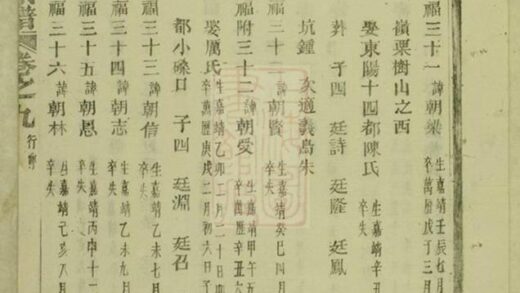 福三十一 諱朝梁 生嘉靖壬辰七月 卒萬曆戊子三月
嶺栗樹山之西
娶東陽十四都陳氏 生嘉靖辛丑 卒失
葬 子四 廷詩 廷隆 廷鳳
坑鍾 次適義烏朱
福三十二 諱朝賢 生嘉靖癸巳四月 卒失
福附三十二 諱朝受 生嘉靖甲午五 卒萬曆辛丑六
娶厲氏 生嘉靖乙卯二月二十日 卒萬曆庚戌二月初六日子
都小磉口 子四 廷淵 廷召
福三十三 諱朝信 生嘉靖乙未七月 卒失
福三十四 諱朝志 生嘉靖乙未九月 卒失
福三十五 諱朝恩 生嘉靖丙申十一 卒失
福三十六 諱朝林 生嘉靖己亥八月 卒失
譜 卷之九 行傳